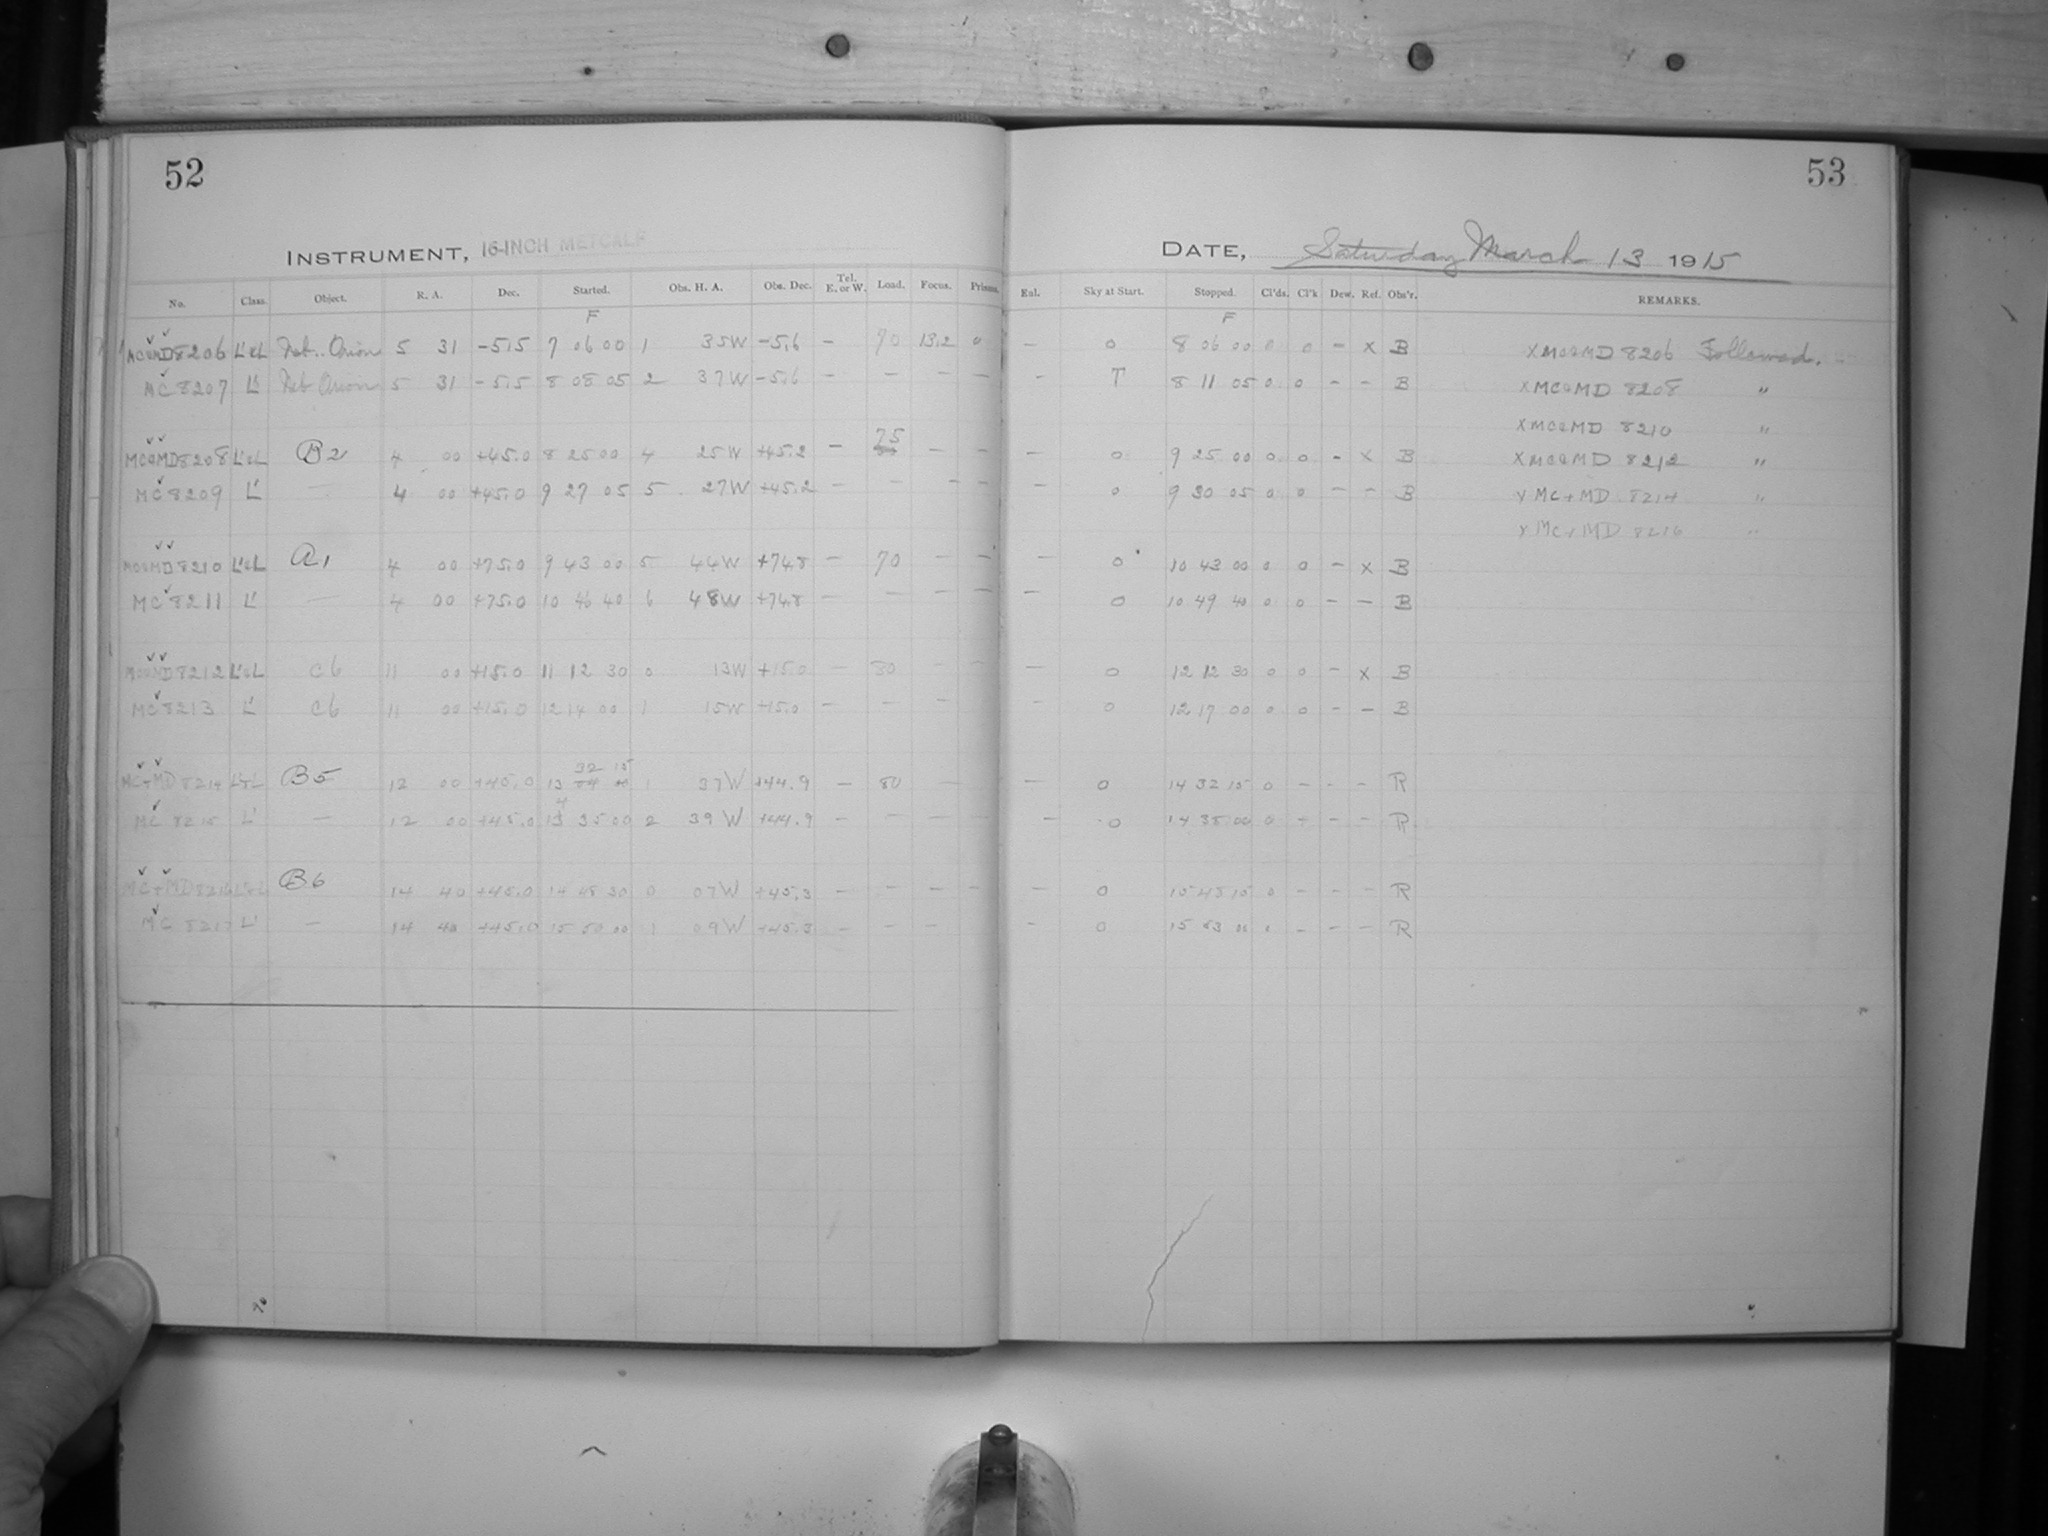 52
INSTRUMENT, 16-INCH METCALF
No. Class. Object. R. A. Dec. Started. Obs. H. A. Obs. Dec. Tel. E. or W. Load. Focus. Prisms.
F
MC&MD8206 L'&L Neb. Orion 5 31 -5.5 7 06 00 1 35W -5.6 - 70 13.2 0
MC 8207 L' Neb Orion 5 31 -5.5 8 08 05 2 37W -5.6 - - - -
75
MC&MD8208 L'&L B2 4 00 +45.0 8 25 00 4 25W +45.2 - - -
MC 8209 L' - 4 00 +45.0 9 27 05 5 27W +45.2 - - - -
MC&MD8210 L'&L A1 4 00 +75.0 9 43 00 5 44W +74.8 - 70 - -
MC 8211 L' - 4 00 +75.0 10 46 40 6 48W +74.8 - - - -
MC&MD8212 L'&L C6 11 00 +15.0 11 12 30 0 13W +15.0 - 80 - -
MC 8213 L' C6 11 00 +15.0 12 14 00 1 15W +15.0 - - -
32 15
MC+MD 8214 L'+L B5 12 00 +45.0 13 04 00 1 37W +44.9 - 80 -
MC 8215 L' - 12 00 +45.0 13 35 00 2 39W +44.9 - - - -
MC+MD8216 L'+L B6 14 40 +45.0 14 48 30 0 07W +45.3 - - - -
MC 8217 L' - 14 40 +45.0 15 50 00 1 09W +45.3 - - -
53
DATE, Saturday March 13 1915
Enl. Sky at Start. Stopped. Cl'ds. Cl'k Dew. Ref. Obs'r. REMARKS.
F
- 0 8 06 00 0 0 - X B X MC&MD 8206 Followed.
- T 8 11 05 0 0 - - B X MC&MD 8208 "
X MC&MD 8210 "
- 0 9 25 00 0 0 - X B X MC&MD 8212 "
- 0 9 30 05 0 0 - - B X MC+MD 8214 "
X MC+MD 8216 "
- 0 10 43 00 0 0 - X B
- 0 10 49 40 0 0 - - B
- 0 12 12 30 0 0 - X B
- 0 12 17 00 0 0 - - B
- 0 14 32 15 0 - - - R
- 0 14 38 00 0 - - - R
- 0 15 48 15 0 - - - R
- 0 15 53 00 - - - R